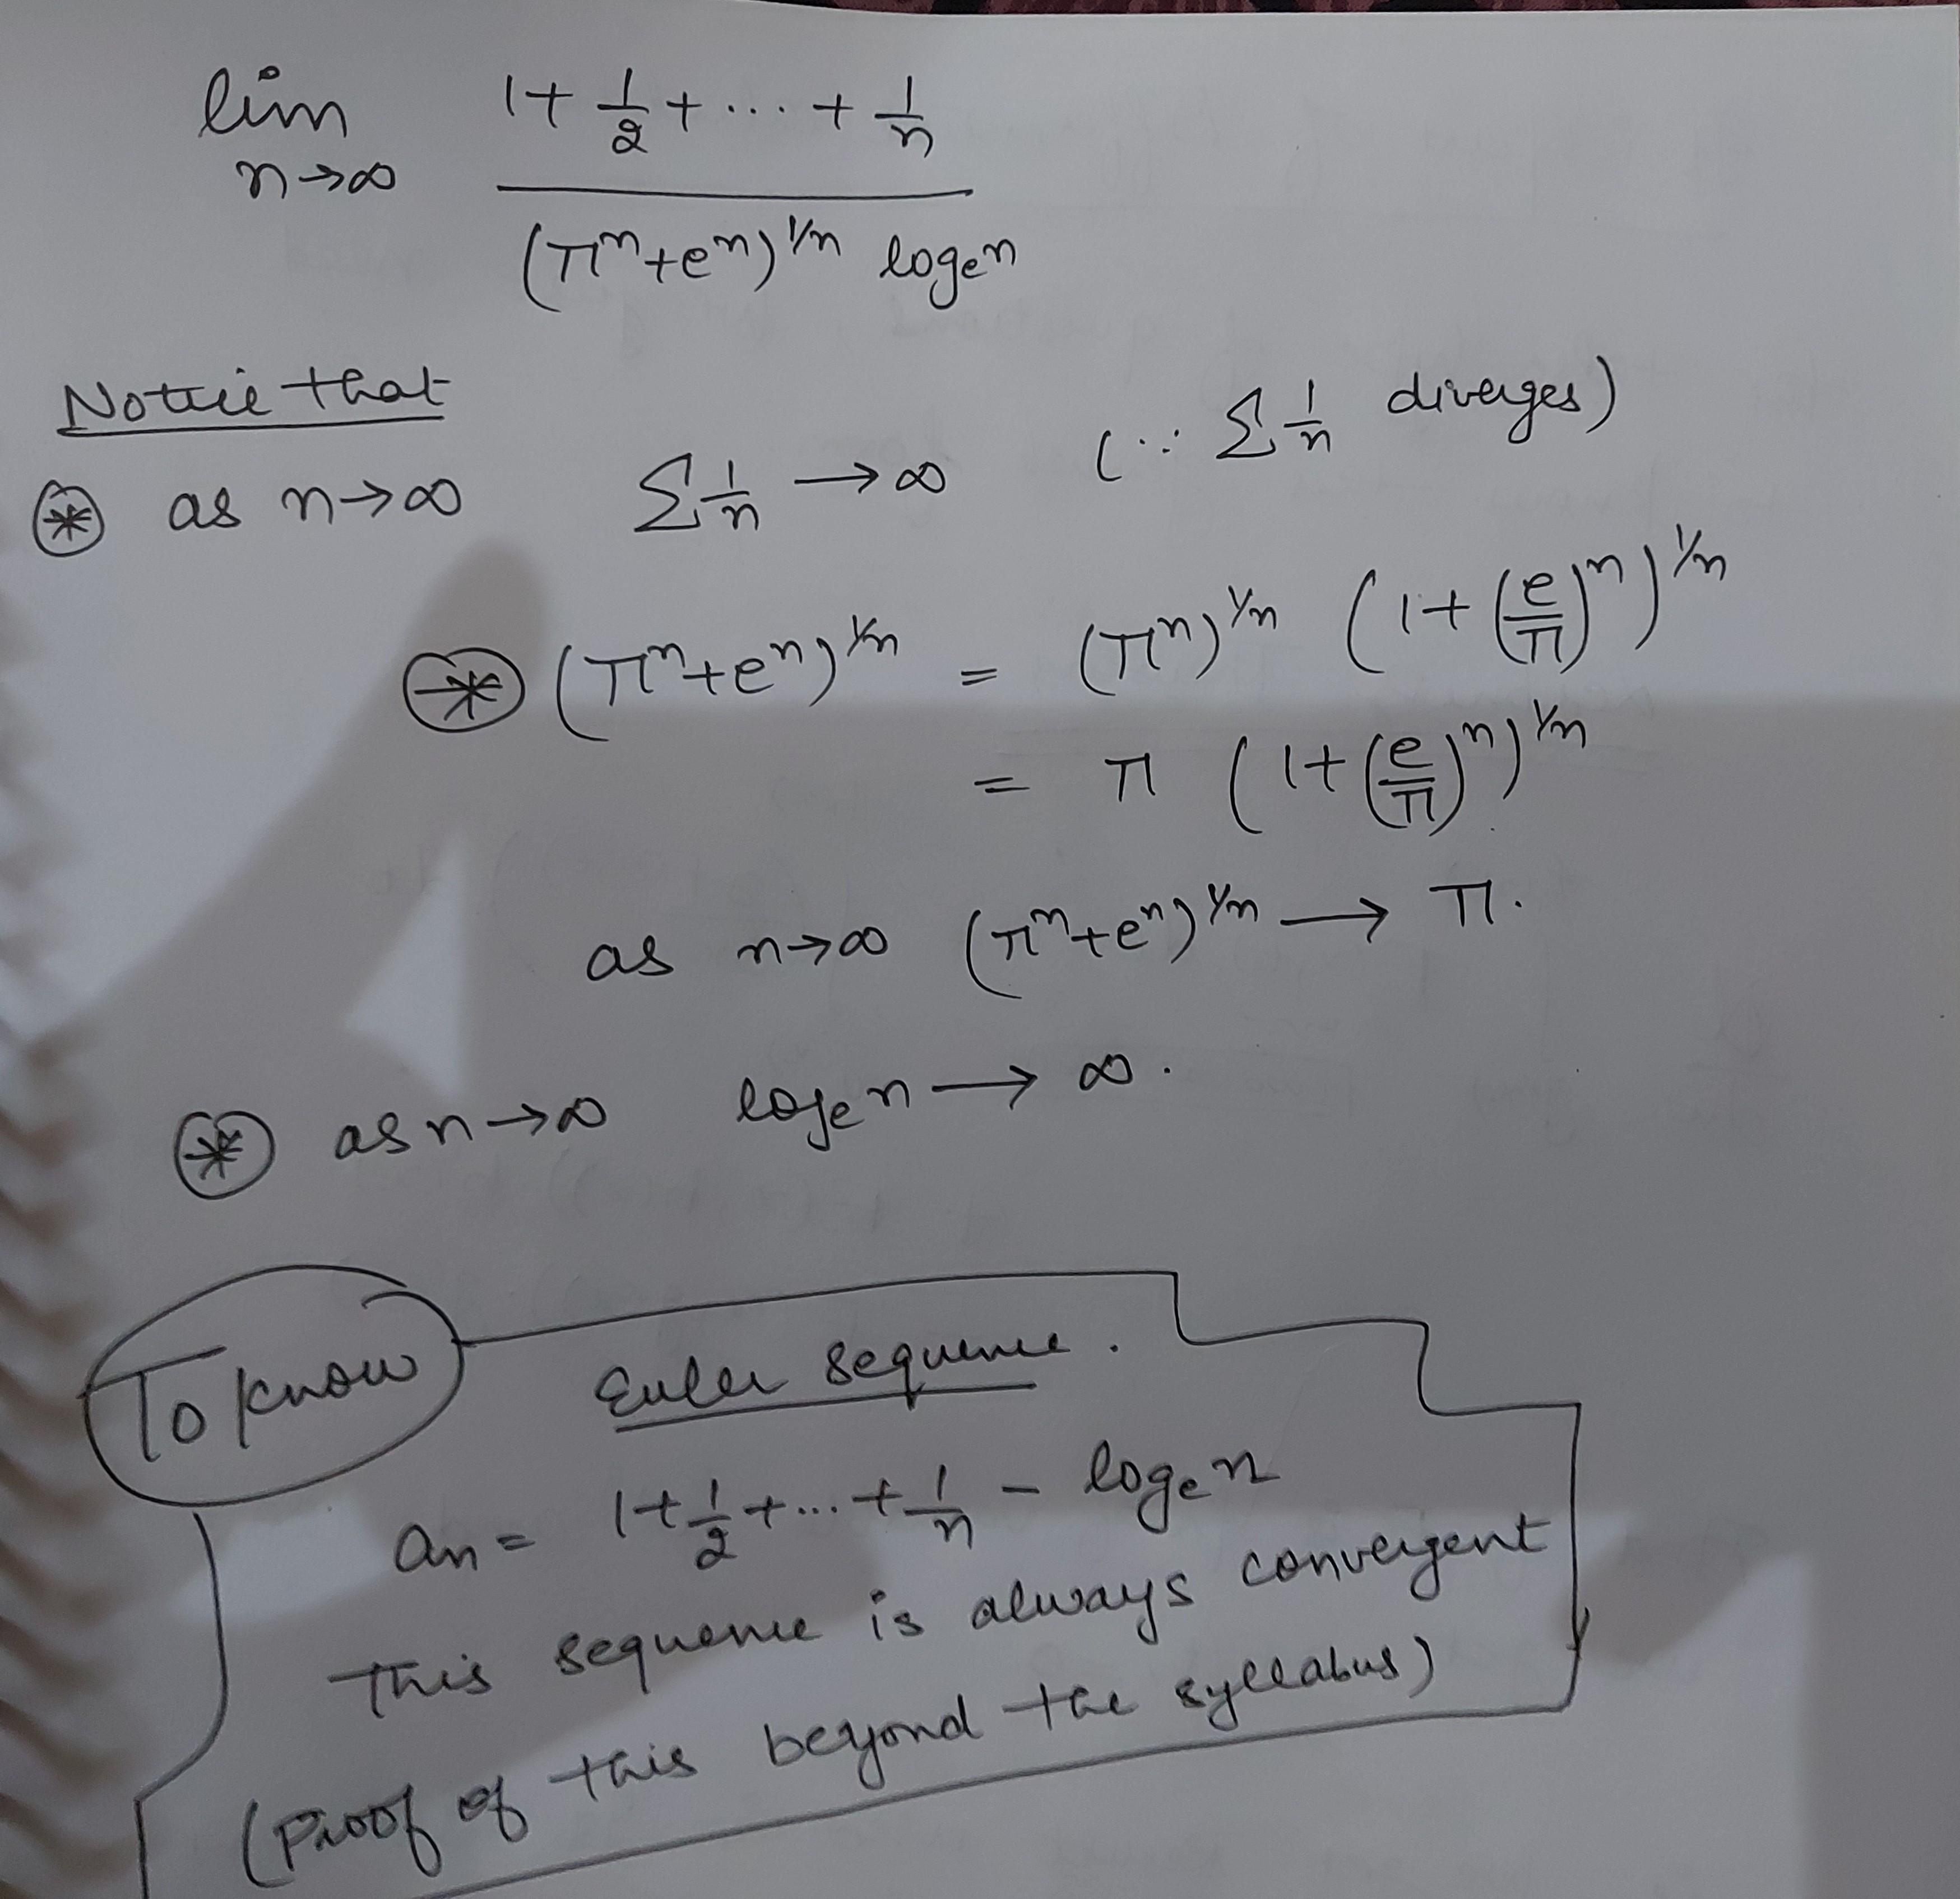 lim n→∞ (1 + 1/2 + ... + 1/n) / ((π^n + e^n)^{1/n} log_e n)
Notice that
⊛ as n→∞ Σ 1/n → ∞ (∵ Σ 1/n diverges)
⊛ (π^n + e^n)^{1/n} = (π^n)^{1/n} (1 + (e/π)^n)^{1/n}
= π (1 + (e/π)^n)^{1/n}
as n→∞ (π^n + e^n)^{1/n} → π.
⊛ as n→∞ log_e n → ∞.
To know
Euler sequence.
an = 1 + 1/2 + ... + 1/n - log_e n
This sequence is always convergent
(Proof of this beyond the syllabus)